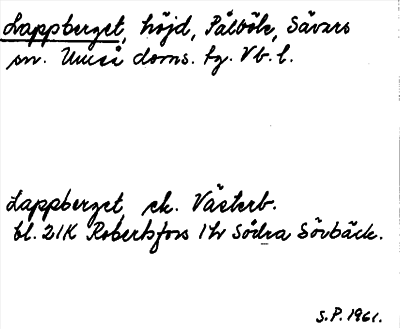 Lappberget, höjd, Pålböle, Sävars
sn. Umeå doms. tg. Vb. l.
Lappberget ek. Västerb.
bl. 21K Robertsfors 1 hv Södra Sövbäck.
S.P. 1961.